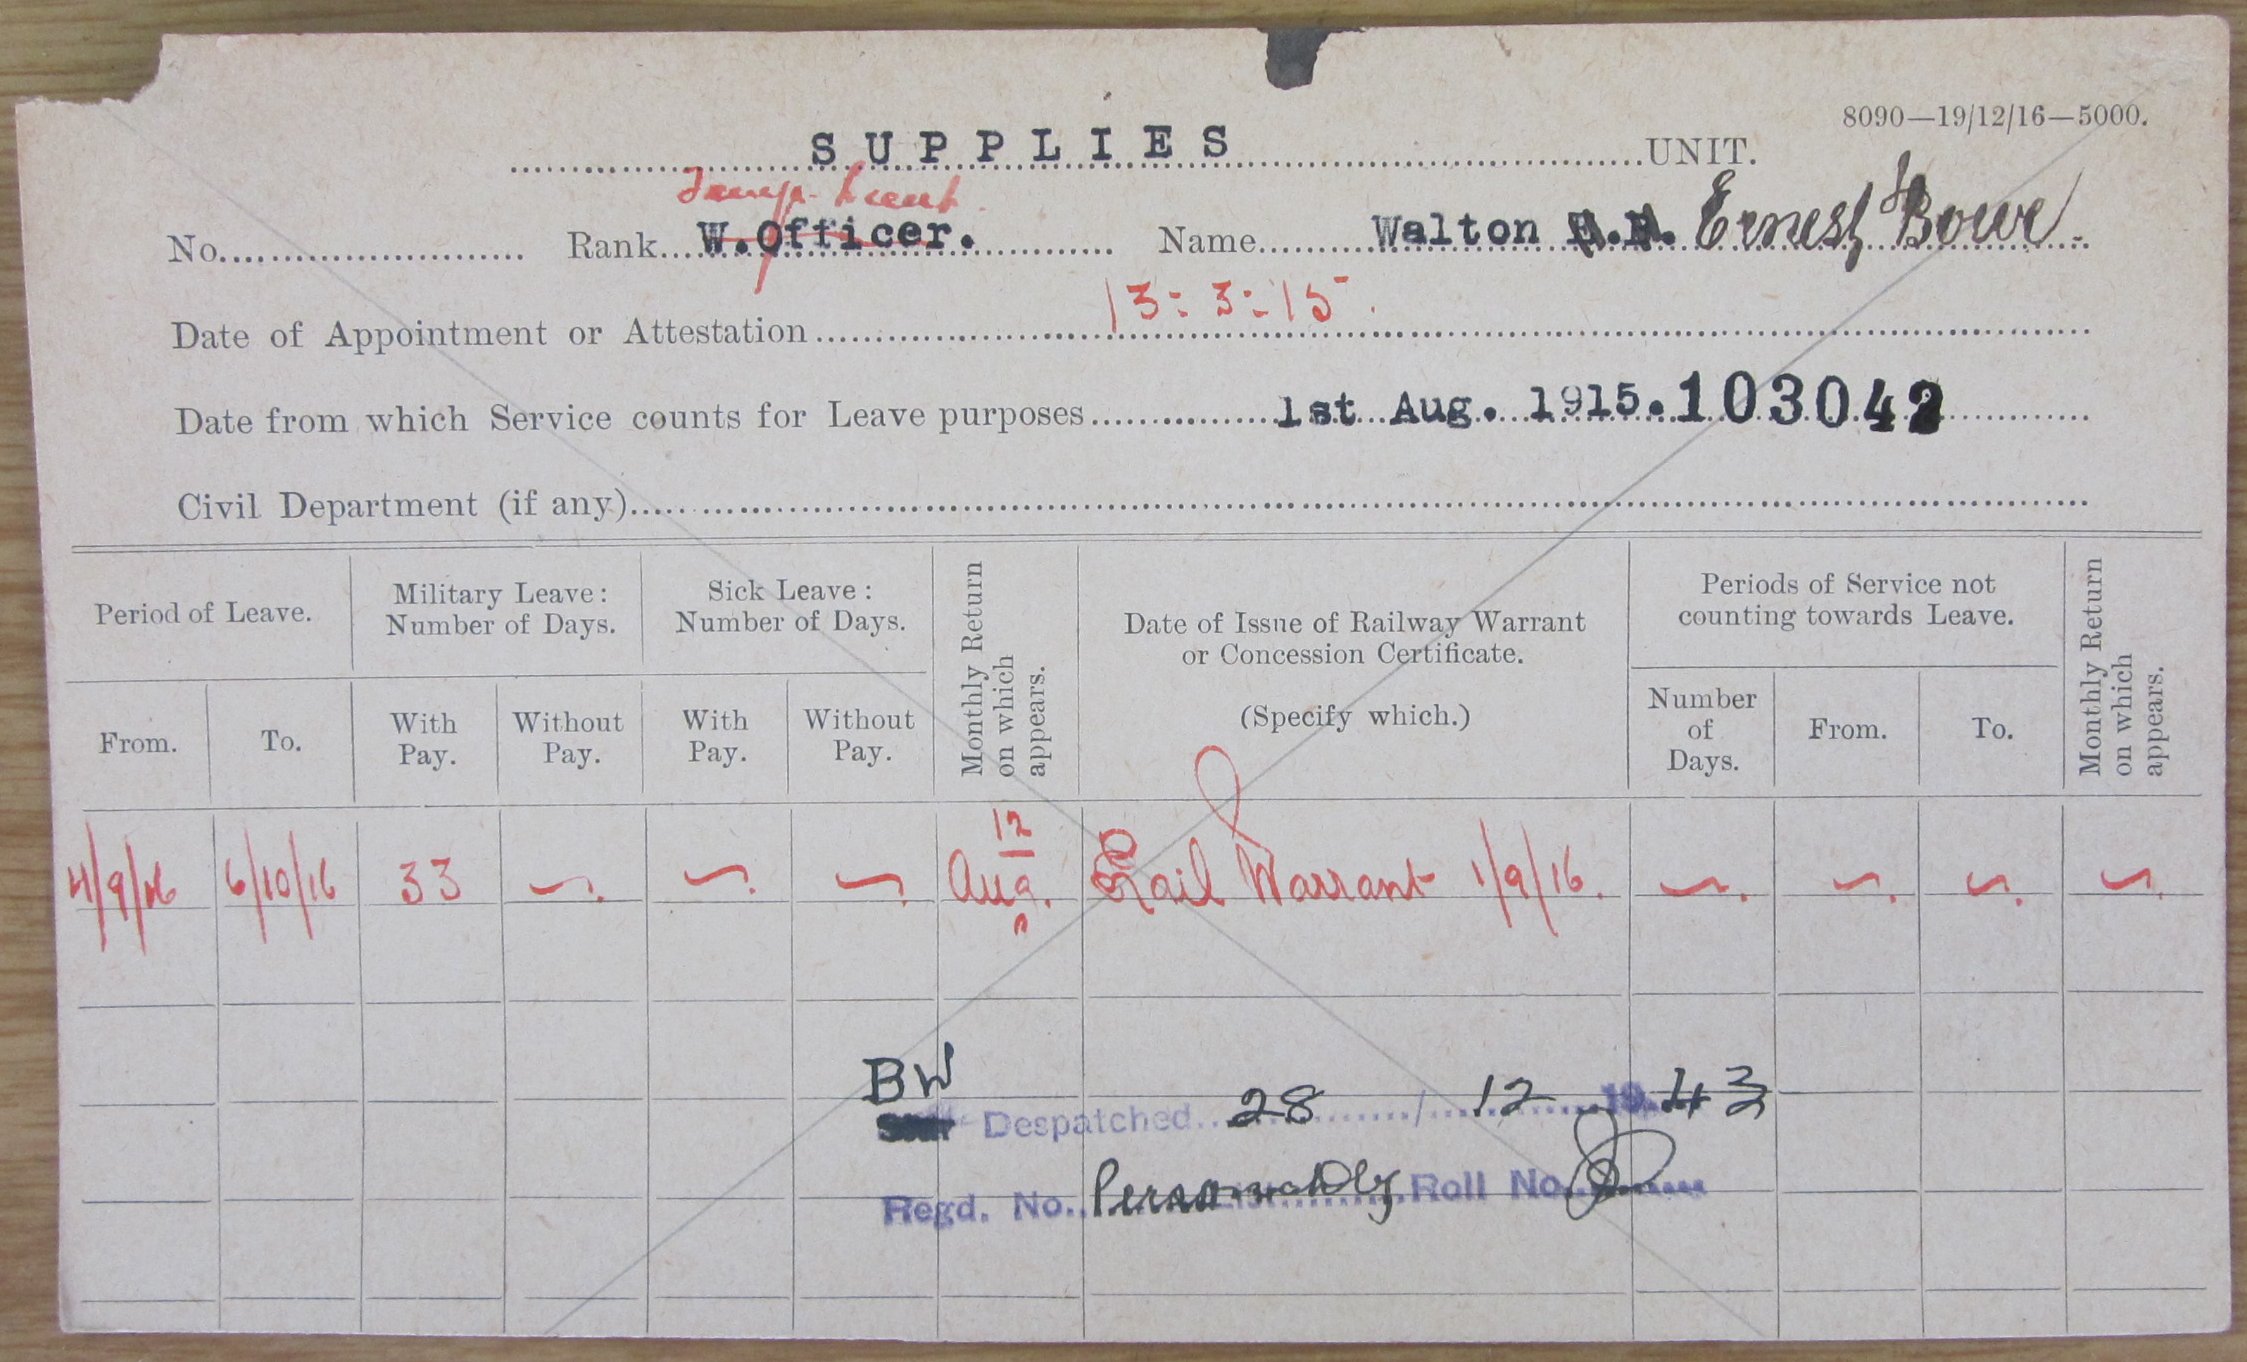 8090—19/12/16—5000.
SUPPLIES UNIT.
Temp. Lieut.
No. Rank W.Officer. Name Walton Ernest Bowe
Date of Appointment or Attestation 13:3:15.
Date from which Service counts for Leave purposes 1st Aug. 1915. 103042
Civil Department (if any)
Period of Leave. Military Leave: Number of Days. Sick Leave: Number of Days. Monthly Return on which appears. Date of Issue of Railway Warrant or Concession Certificate. (Specify which.) Periods of Service not counting towards Leave. Monthly Return on which appears.
From. To. With Pay. Without Pay. With Pay. Without Pay. Number of Days. From. To.
4/9/16 6/10/16 33 12 Aug. Rail Warrant 1/9/16.
BW
Despatched 28 / 12 1943
Regd. No. Personally Roll No.